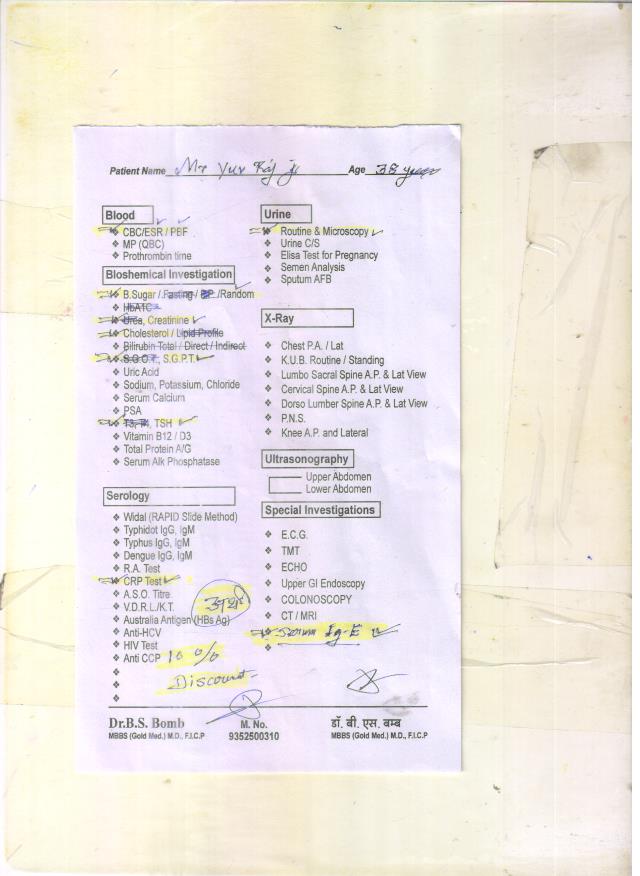 Patient Name Mr Yuv Raj ji Age 38 years
Blood
CBC/ESR / PBF
MP (QBC)
Prothrombin time
Bioshemical Investigation
B.Sugar / Fasting / PP /Random
HbA1C
Urea, Creatinine
Cholesterol / Lipid Profile
Bilirubin Total / Direct / Indirect
S.G.O.T., S.G.P.T.
Uric Acid
Sodium, Potassium, Chloride
Serum Calcium
PSA
T3, T4, TSH
Vitamin B12 / D3
Total Protein A/G
Serum Alk Phosphatase
Serology
Widal (RAPID Slide Method)
Typhidot IgG, IgM
Typhus IgG, IgM
Dengue IgG, IgM
R.A. Test
CRP Test
A.S.O. Titre
V.D.R.L./K.T.
Australia Antigen (HBs Ag)
Anti-HCV
HIV Test
Anti CCP 10 %
Discount
Urine
Routine & Microscopy
Urine C/S
Elisa Test for Pregnancy
Semen Analysis
Sputum AFB
X-Ray
Chest P.A. / Lat
K.U.B. Routine / Standing
Lumbo Sacral Spine A.P. & Lat View
Cervical Spine A.P. & Lat View
Dorso Lumber Spine A.P. & Lat View
P.N.S.
Knee A.P. and Lateral
Ultrasonography
Upper Abdomen
Lower Abdomen
Special Investigations
E.C.G.
TMT
ECHO
Upper GI Endoscopy
COLONOSCOPY
CT / MRI
Serum Ig-E
Dr.B.S. Bomb M. No. डॉ. बी. एस. बम्ब
MBBS (Gold Med.) M.D., F.I.C.P 9352500310 MBBS (Gold Med.) M.D., F.I.C.P